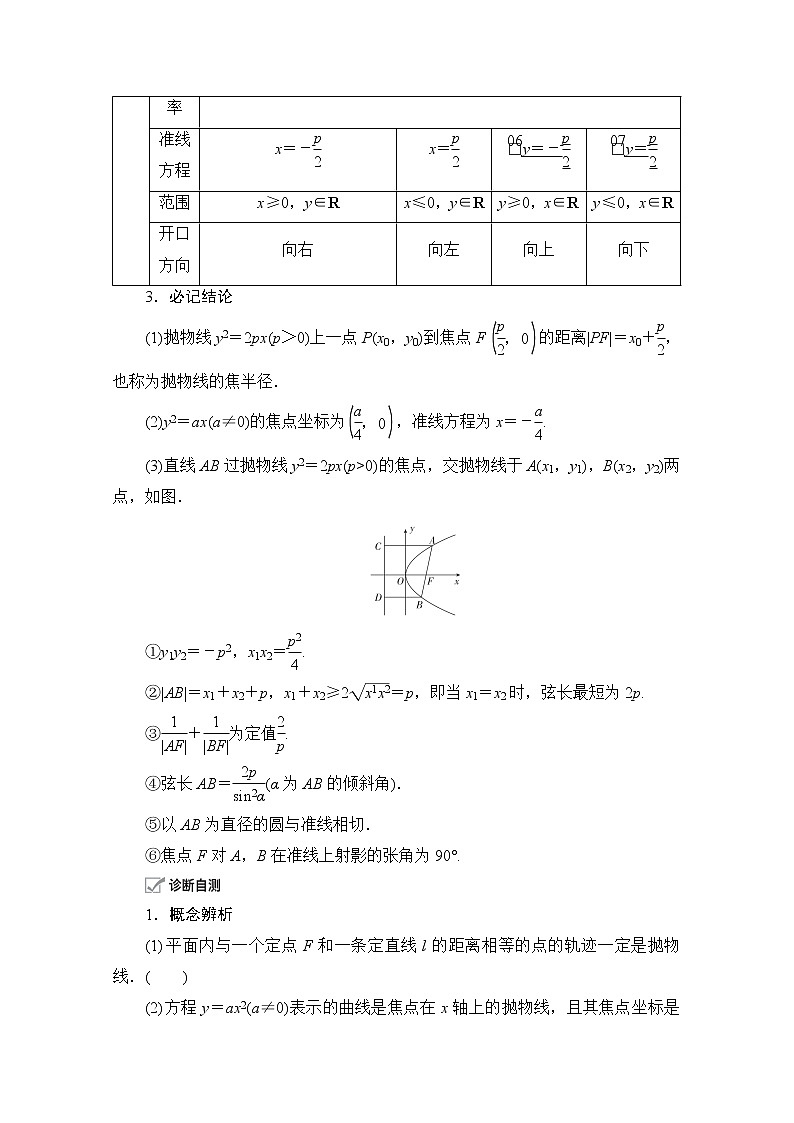 率
准线方程 x=－p/2 x=p/2 06□y=－p/2 07□y=p/2
范围 x≥0，y∈R x≤0，y∈R y≥0，x∈R y≤0，x∈R
开口方向 向右 向左 向上 向下
3．必记结论
(1)抛物线 y²＝2px(p＞0)上一点 P(x₀，y₀)到焦点 F(p/2，0)的距离|PF|＝x₀＋p/2，
也称为抛物线的焦半径．
(2)y²＝ax(a≠0)的焦点坐标为(a/4，0)，准线方程为 x＝－a/4.
(3)直线 AB 过抛物线 y²＝2px(p>0)的焦点，交抛物线于 A(x₁，y₁)，B(x₂，y₂)两
点，如图．
y
C A
O F x
D B
①y₁y₂＝－p²，x₁x₂＝p²/4.
②|AB|＝x₁＋x₂＋p，x₁＋x₂≥2√(x1x2)＝p，即当 x₁＝x₂ 时，弦长最短为 2p.
③1/|AF|＋1/|BF|为定值2/p.
④弦长 AB＝2p/sin²α(α 为 AB 的倾斜角)．
⑤以 AB 为直径的圆与准线相切．
⑥焦点 F 对 A，B 在准线上射影的张角为 90°.
诊断自测
1．概念辨析
(1)平面内与一个定点 F 和一条定直线 l 的距离相等的点的轨迹一定是抛物
线．(　　)
(2)方程 y＝ax²(a≠0)表示的曲线是焦点在 x 轴上的抛物线，且其焦点坐标是